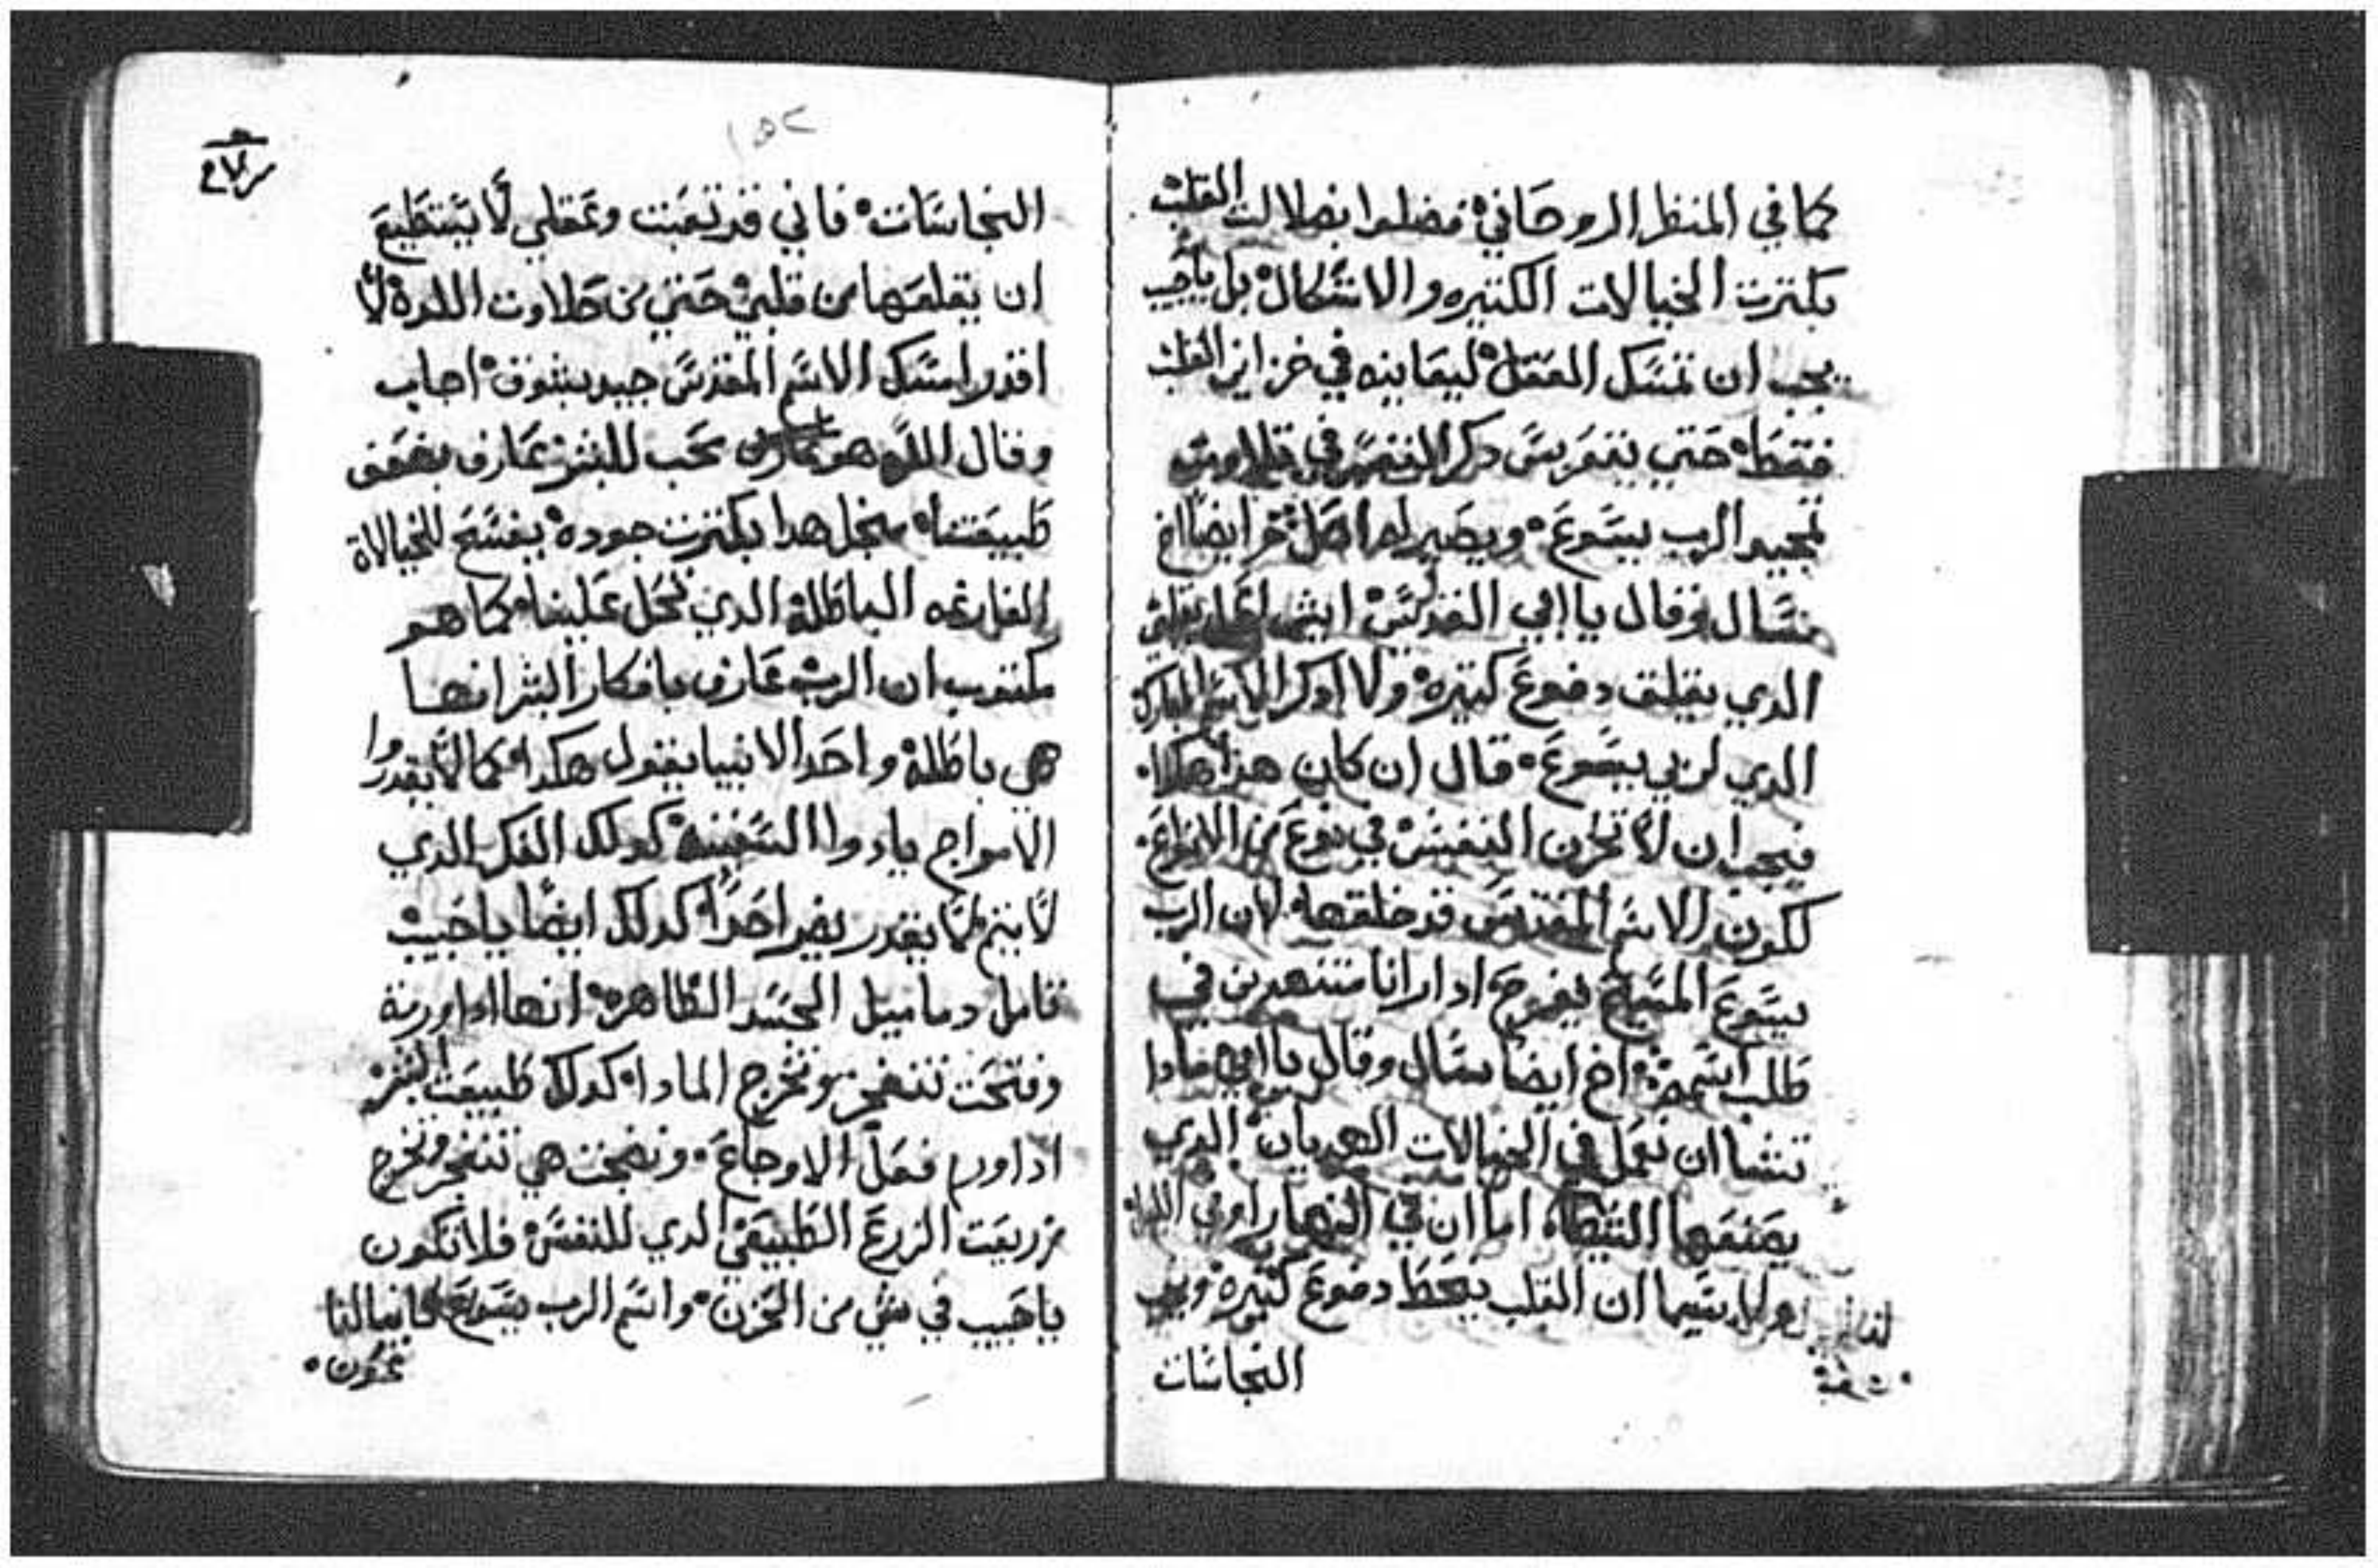 كما في المنظر الروحاني فضلوا بضلالت القلب
بكترت الخيالات الكتيره والاشكال بل
يجب ان تمسك العقل ليعاينه في خزاين القلب
فقط حتي تنغرس دكر النفس في
تمجيد الرب يسوع ويصير اخر ايضا اخ
سال وقال يا ابي القديس ايش اعمل
الدي يقلق دفوع كتيره ولا ادكر الاسم المبارك
الدي لربي يسوع قال ان كان هدا هكدا
فيجب ان لا تحزن النفس في نوع من الانواع
لكون الاسم المقدس قد خلقها لان الرب
يسوع المسيح يفرح ادا رانا متنهدين في
طلب اسمه اخ ايضا سال وقال يا ابي مادا
تشا ان نعمل في الخيالات الهديان الدي
يصنعها الشيطان اما ان في النهار او في الليل
ولا سيما ان القلب دفوع كتيره
النجاسات
١٥٢
النجاسات فاني قد تعبت وعقلي لا يستطيع
ان يقلعها من قلبي حتي من حلاوت اللده لا
اقدر امسك الاسم المقدس جيد بشوق اجاب
وقال الله هو محب للبشر عارف بضعف
طبيعتنا منجل هدا بكترت جوده يفسح للخيالاة
الفارغه الباطلة الدي تحل علينا كما هو
مكتوب ان الرب عارف بافكار البشر انها
هي باطلة واحد الانبيا يقول هكدا كما لا يقدروا
الامواج يادوا السفينة كدلك الفكر الدي
لا يتم لا يقدر يضر احدا كدلك ايضا يا حبيب
تامل دماميل الجسد الظاهره انها ادا ورمة
وفتحت تنفجر وتخرج المادا كدلك طبيعت البشر
ادا ورم فعل الاوجاع ونضجت هي تنفجر وتخرج
زريعت الزرع الطبيعي الدي للنفس فلا تكون
يا حبيب في شي من الحزن واسم الرب يسوع